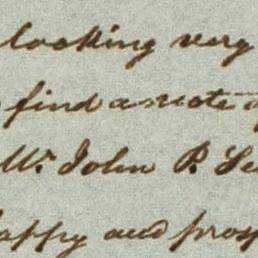 looking very
find a note
Mr. John P.
happy and